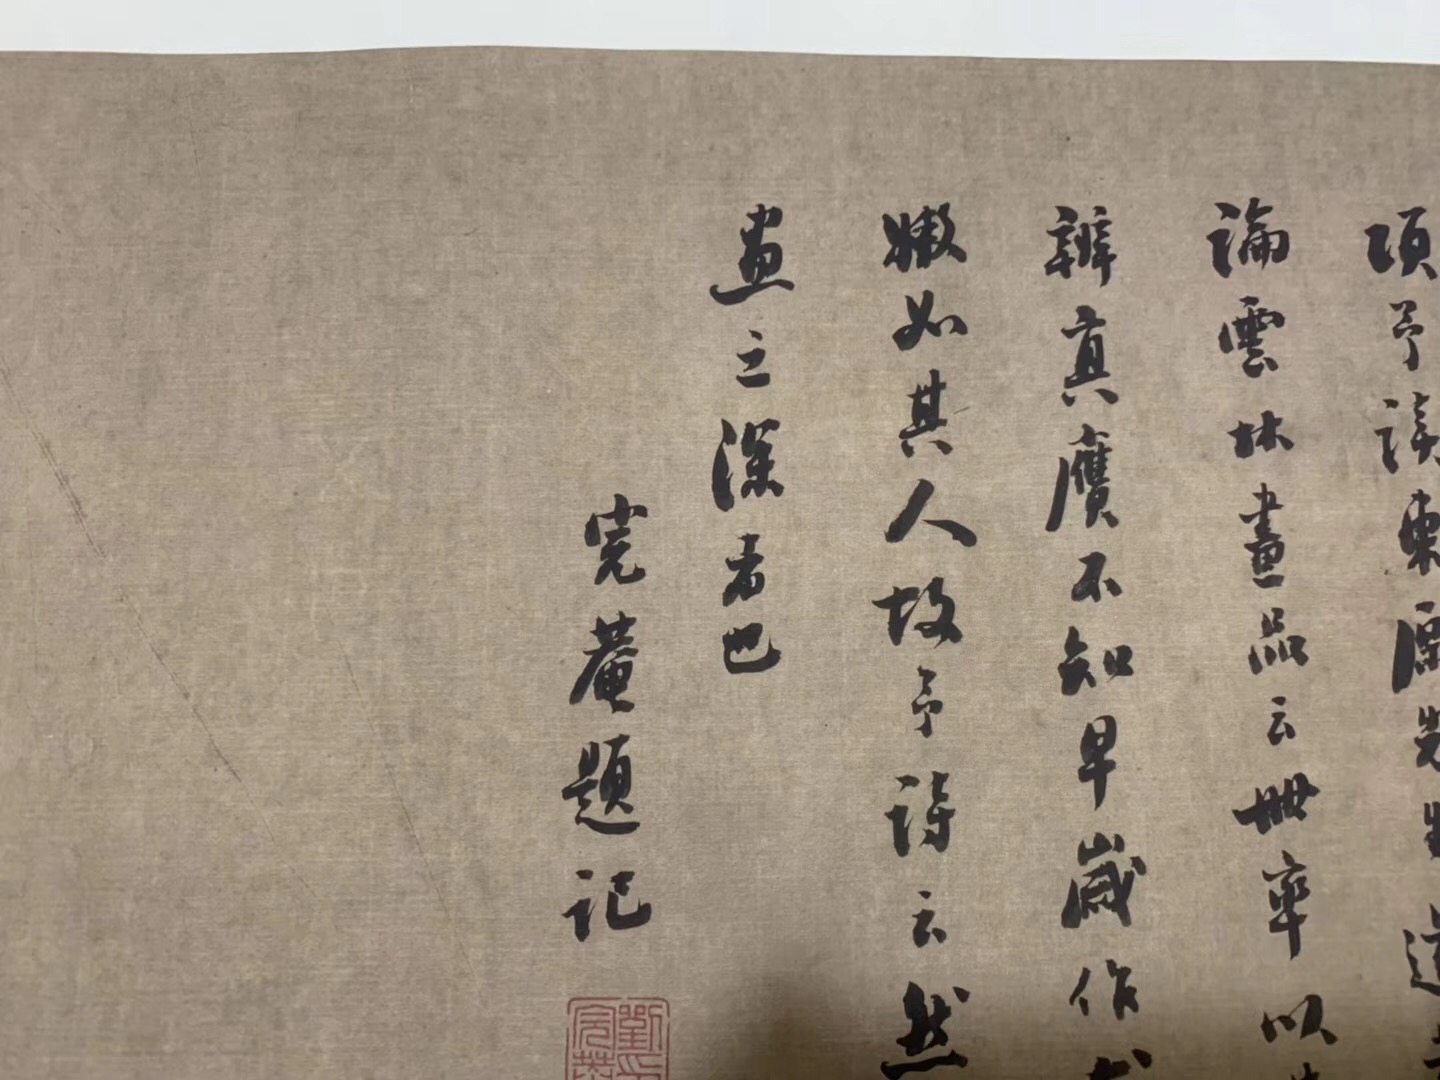 項予讀東原先生
論雲林畫品云世率以
辨真贋不知早歲作
嫩如其人故予詩云然
畫之深者也
完菴題記